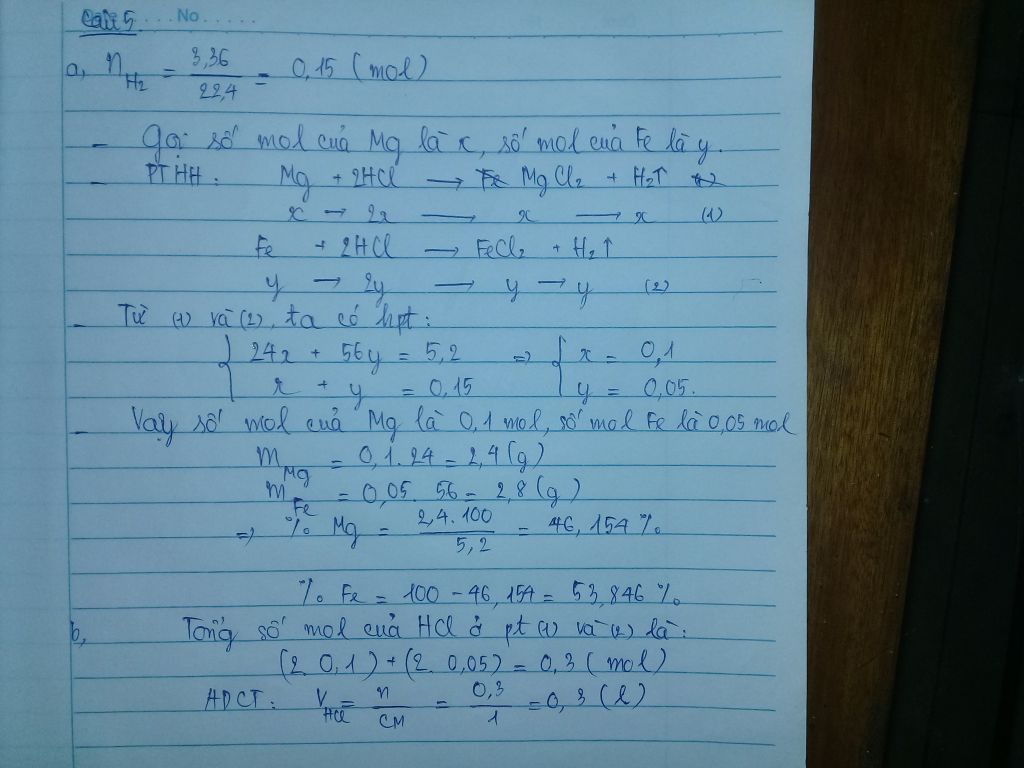 Câu 5 ... No .....
a, n_H2 = 3,36/22,4 = 0,15 (mol)
- Gọi số mol của Mg là x, số mol của Fe là y.
- PTHH: Mg + 2HCl → MgCl2 + H2↑
x → 2x → x → x (1)
Fe + 2HCl → FeCl2 + H2↑
y → 2y → y → y (2)
- Từ (1) và (2), ta có hpt:
{ 24x + 56y = 5,2 => { x = 0,1
x + y = 0,15 y = 0,05.
- Vậy số mol của Mg là 0,1 mol, số mol Fe là 0,05 mol
m_Mg = 0,1.24 = 2,4 (g)
m_Fe = 0,05. 56 = 2,8 (g)
=> % Mg = 2,4.100/5,2 = 46,154 %
% Fe = 100 - 46,154 = 53,846 %
b, Tổng số mol của HCl ở pt (1) và (2) là:
(2. 0,1) + (2. 0,05) = 0,3 (mol)
ADCT: V_HCl = n/CM = 0,3/1 = 0,3 (l)